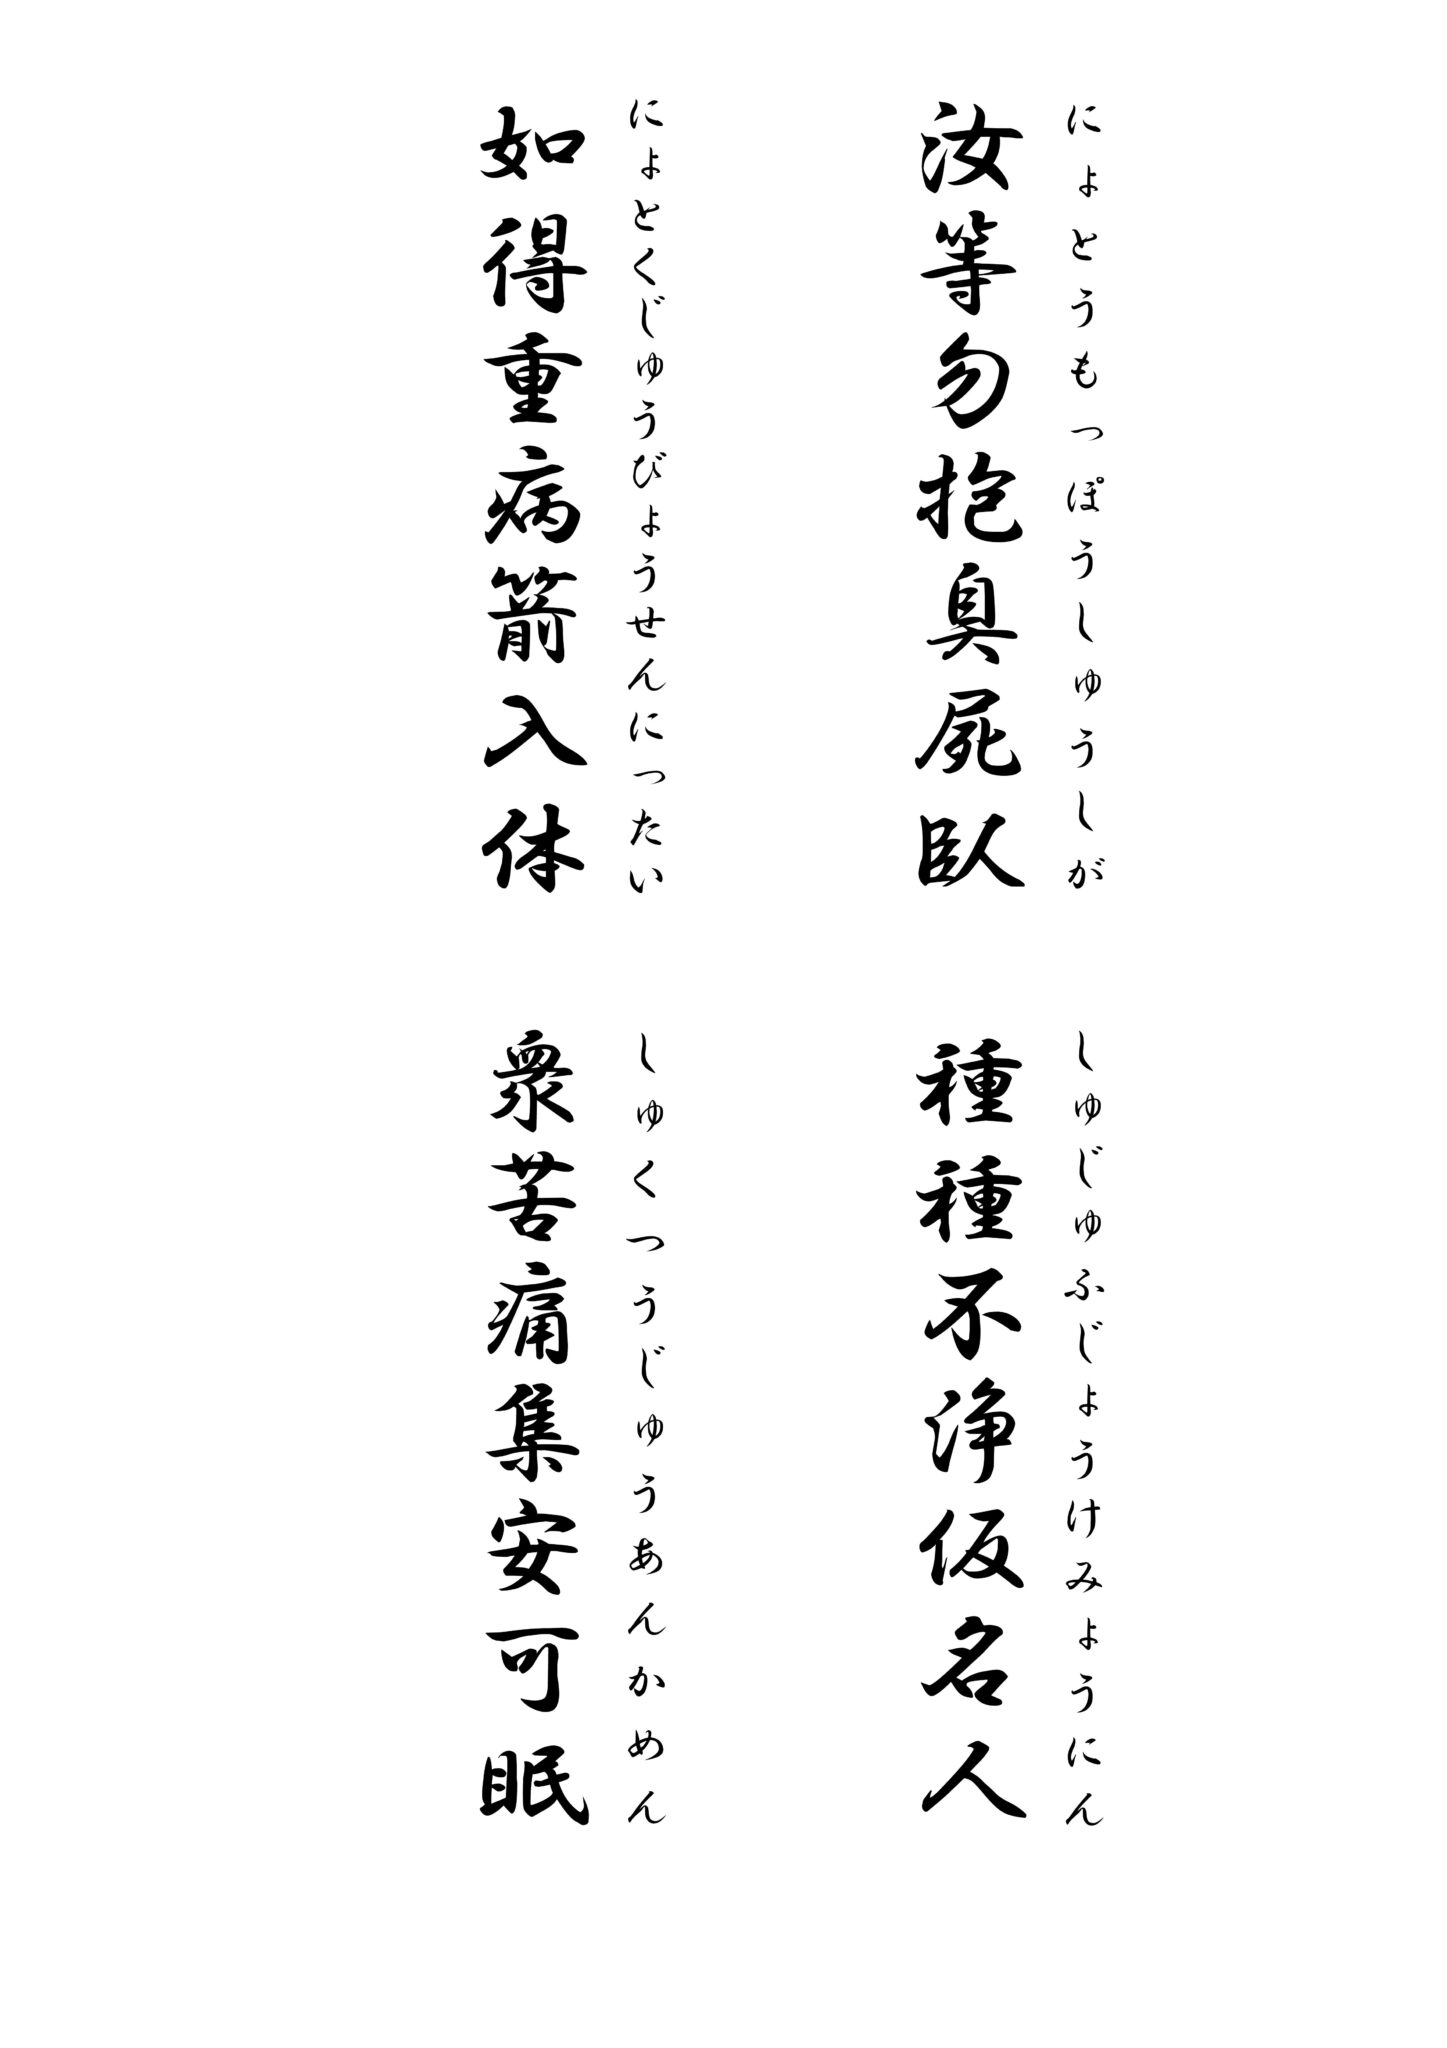 にょとうもっぽうしゅうしが
汝等勿抱臭屍臥
しゅじゅふじょうけみょうにん
種種不浄仮名人
にょとくじゅうびょうせんにったい
如得重病箭入体
しゅくつうじゅうあんかめん
衆苦痛集安可眠